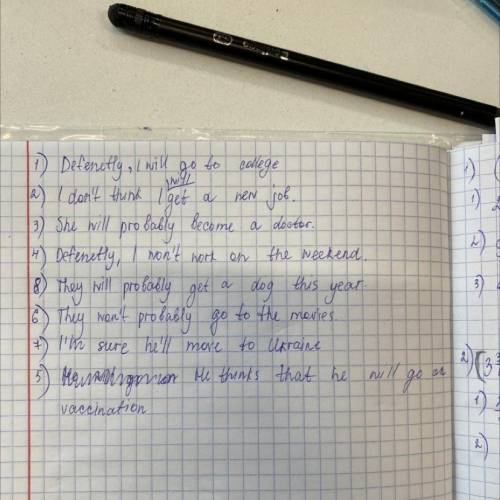 1) Defenetly, I will go to college
2) I don't think I will get a new job.
3) She will probably become a doctor.
4) Defenetly, I won't work on the weekend.
8) They will probably get a dog this year.
6) They won't probably go to the movies.
7) I'm sure he'll move to Ukraine
5) He thinks that he will go on
vaccination
1)
1)
2)
3)
2)
1)
2)